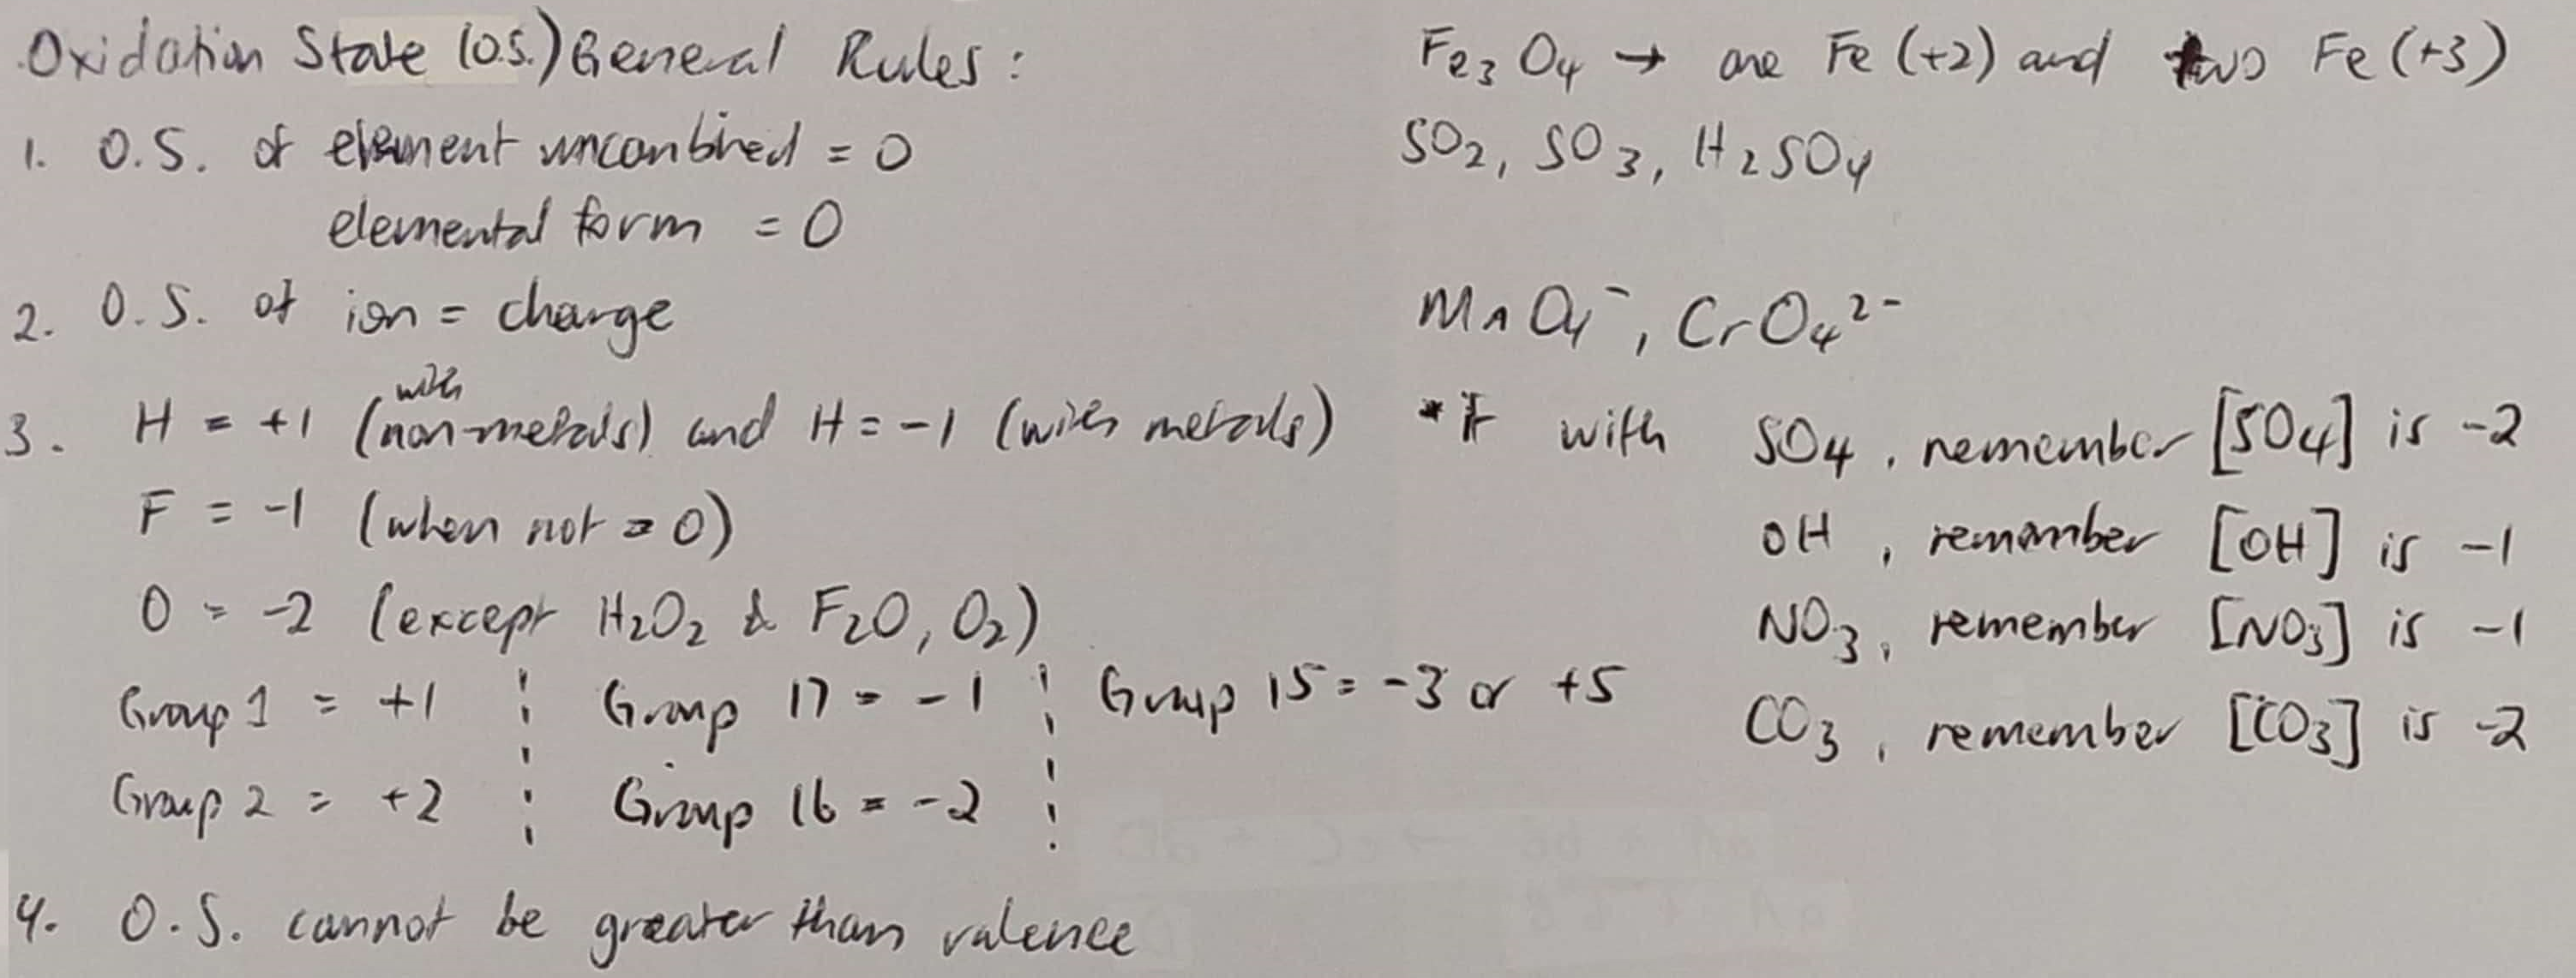 Oxidation State (O.S.) General Rules :
1. O.S. of element uncombined = 0
elemental form = 0
2. O.S. of ion = charge
3. H = +1 (with non-metals) and H = -1 (with metals)
F = -1 (when not = 0)
O = -2 (except H₂O₂ & F₂O, O₂)
Group 1 = +1 ¦ Group 17 = -1 ¦ Group 15 = -3 or +5
Group 2 = +2 ¦ Group 16 = -2 ¦
4. O.S. cannot be greater than valence
Fe₃O₄ → one Fe (+2) and two Fe (+3)
SO₂, SO₃, H₂SO₄
MnO₄⁻, CrO₄²⁻
*If with SO₄, remember [SO₄] is -2
OH, remember [OH] is -1
NO₃, remember [NO₃] is -1
CO₃, remember [CO₃] is -2